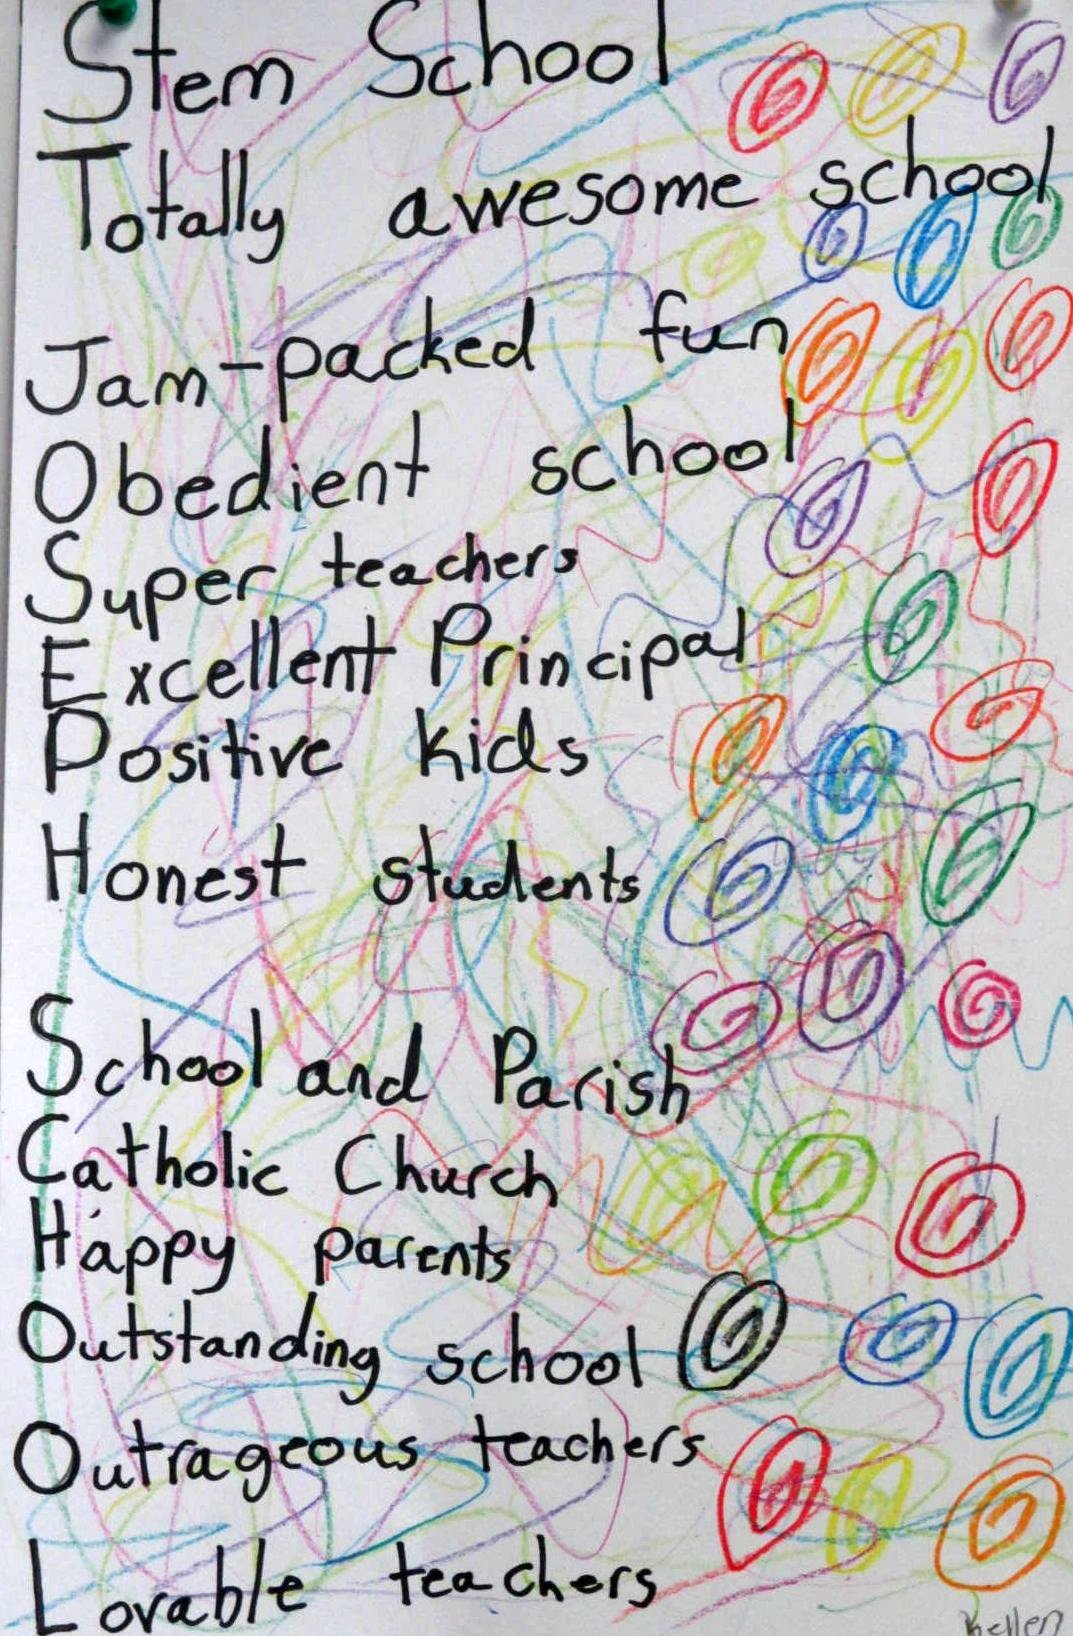 Stem School
Totally awesome school
Jam-packed fun
Obedient school
Super teachers
Excellent Principal
Positive kids
Honest students
School and Parish
Catholic Church
Happy parents
Outstanding school
Outrageous teachers
Lovable teachers
Kellen